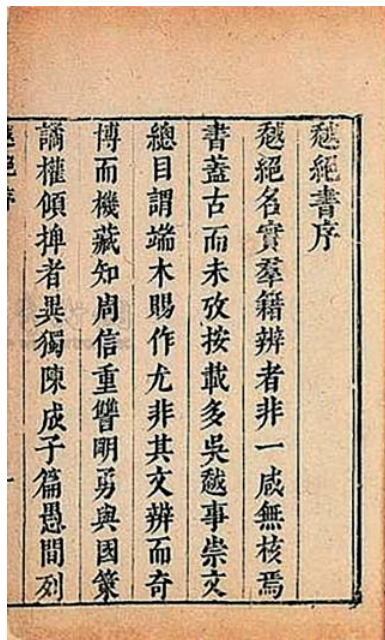 越絕書序
越絕名實羣籍辨者非一咸無核焉
書蓋古而未攷按載多吳越事崇文
總目謂端木賜作尤非其文辨而奇
博而機藏知周信重讐明勇與國策
譎權傾捭者異獨陳成子篇愚間列